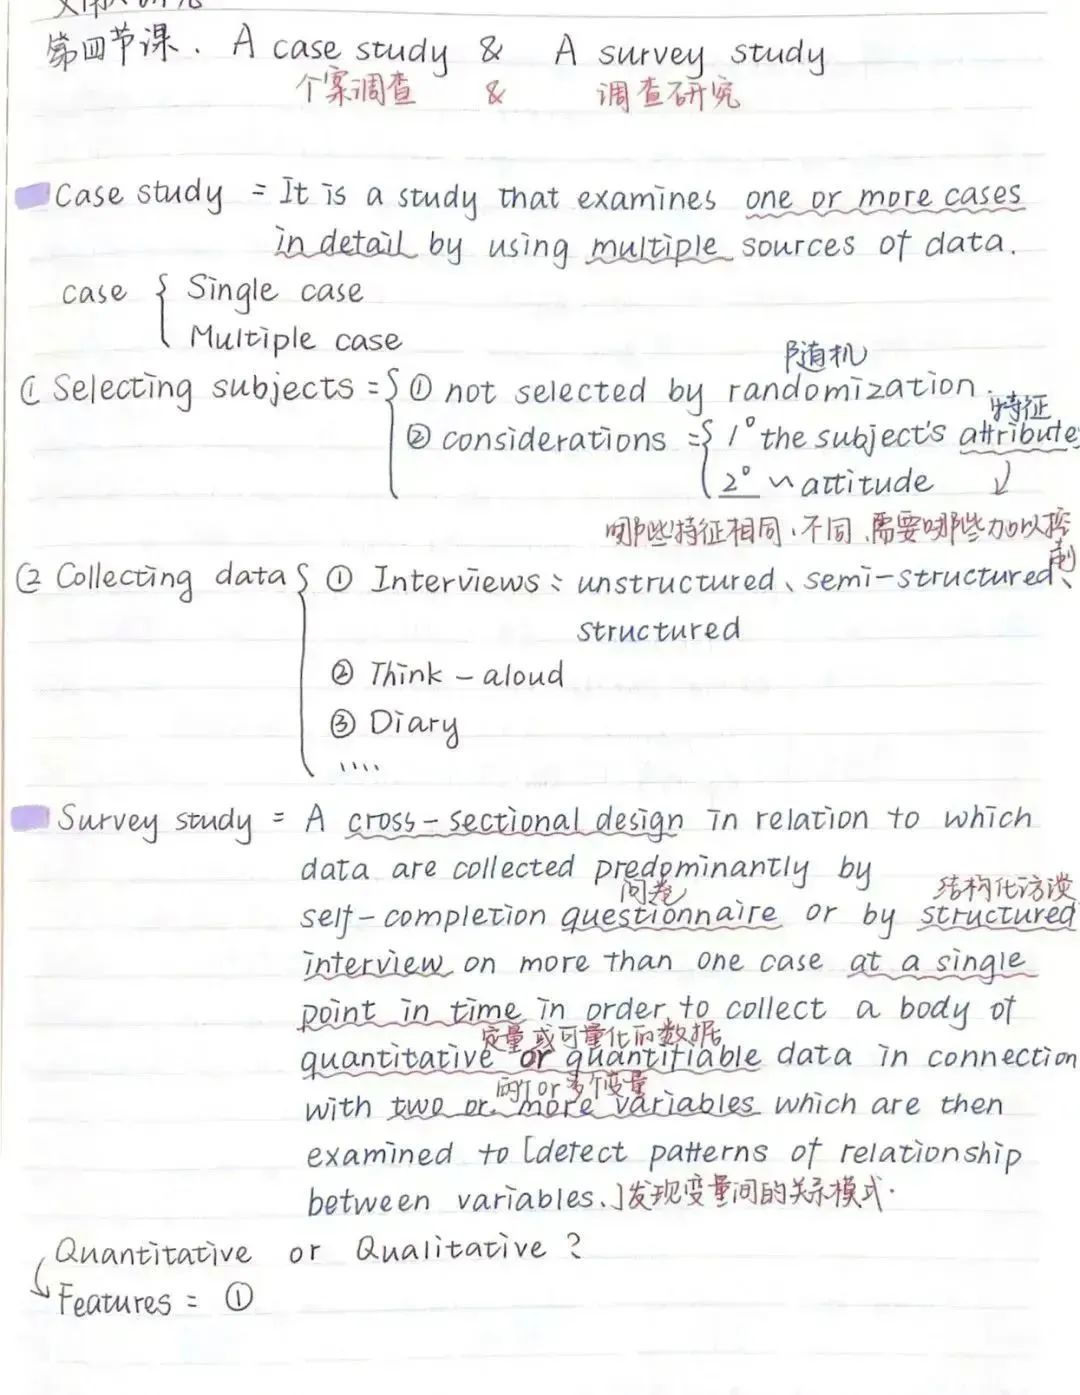 第四节课. A case study & A survey study
个案调查 & 调查研究
Case study = It is a study that examines one or more cases
in detail by using multiple sources of data.
case { Single case
Multiple case
① Selecting subjects = { ① not selected by randomization.
随机
② considerations = { 1° the subject's attribute
特征
2° 〃 attitude
哪些特征相同、不同、需要哪些加以控
制
② Collecting data { ① Interviews: unstructured、semi-structured、
structured
② Think-aloud
③ Diary
....
Survey study = A cross-sectional design in relation to which
data are collected predominantly by
问卷 结构化访谈
self-completion questionnaire or by structured
interview on more than one case at a single
point in time in order to collect a body of
定量或可量化的数据
quantitative or quantifiable data in connection
两个or多个变量
with two or more variables which are then
examined to [detect patterns of relationship
between variables.]发现变量间的关系模式.
Quantitative or Qualitative?
Features = ①